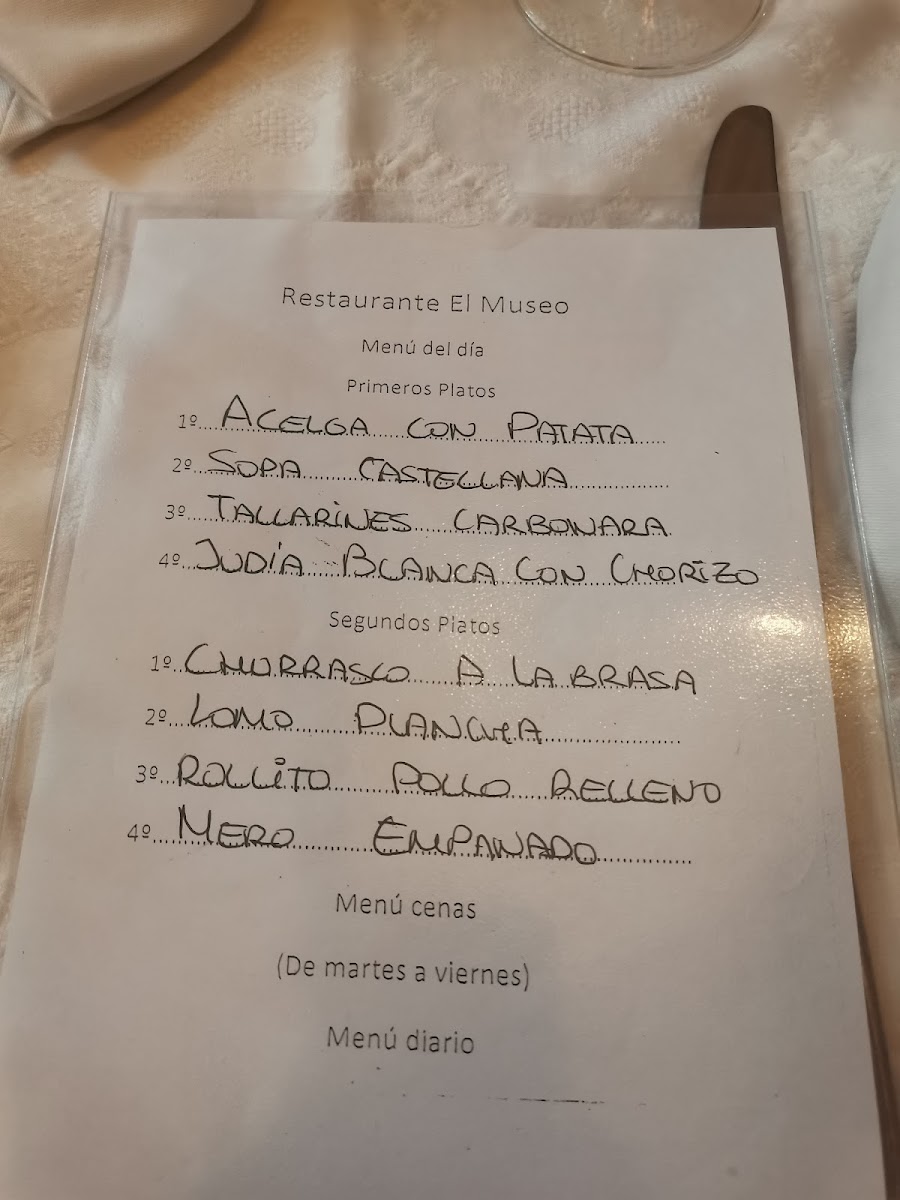 Restaurante El Museo
Menú del día
Primeros Platos
1º ACELGA CON PATATA
2º SOPA CASTELLANA
3º TALLARINES CARBONARA
4º JUDÍA BLANCA CON CHORIZO
Segundos Platos
1º CHURRASCO A LA BRASA
2º LOMO PLANCHA
3º ROLLITO POLLO RELLENO
4º MERO EMPANADO
Menú cenas
(De martes a viernes)
Menú diario